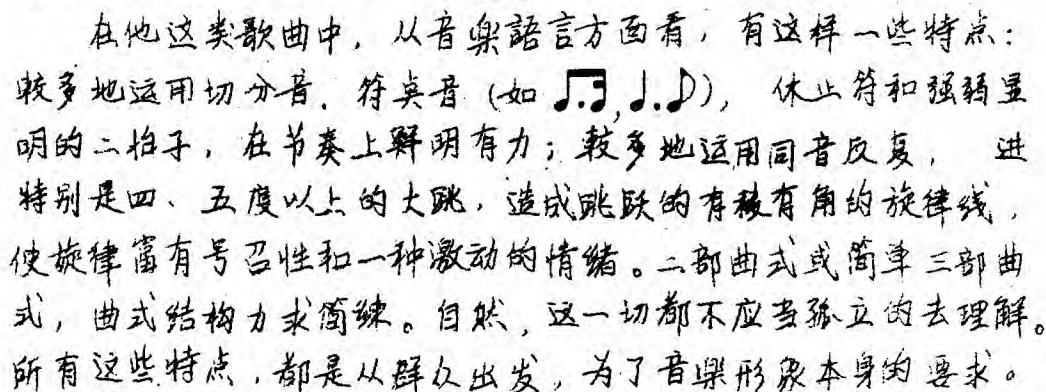 在他这类歌曲中，从音樂語言方面看，有这样一些特点：
较多地运用切分音．符点音（如♫.，♩.♪），休止符和强弱显
明的二拍子，在节奏上鲜明有力；较多地运用同音反复，进
特别是四、五度以上的大跳，造成跳跃的有棱有角的旋律线，
使旋律富有号召性和一种激动的情绪。二部曲式或简单三部曲
式，曲式结构力求简练。自然，这一切都不应当孤立的去理解。
所有这些特点，都是从群众出发，为了音樂形象本身的要求。